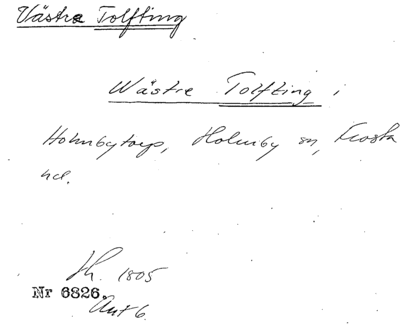 Västra Tolfting
Wästre Tolfting i
Holmbytorp, Holmby sn, Frosta
hd.
Lh. 1805
Nr 6826.
Akt 6.